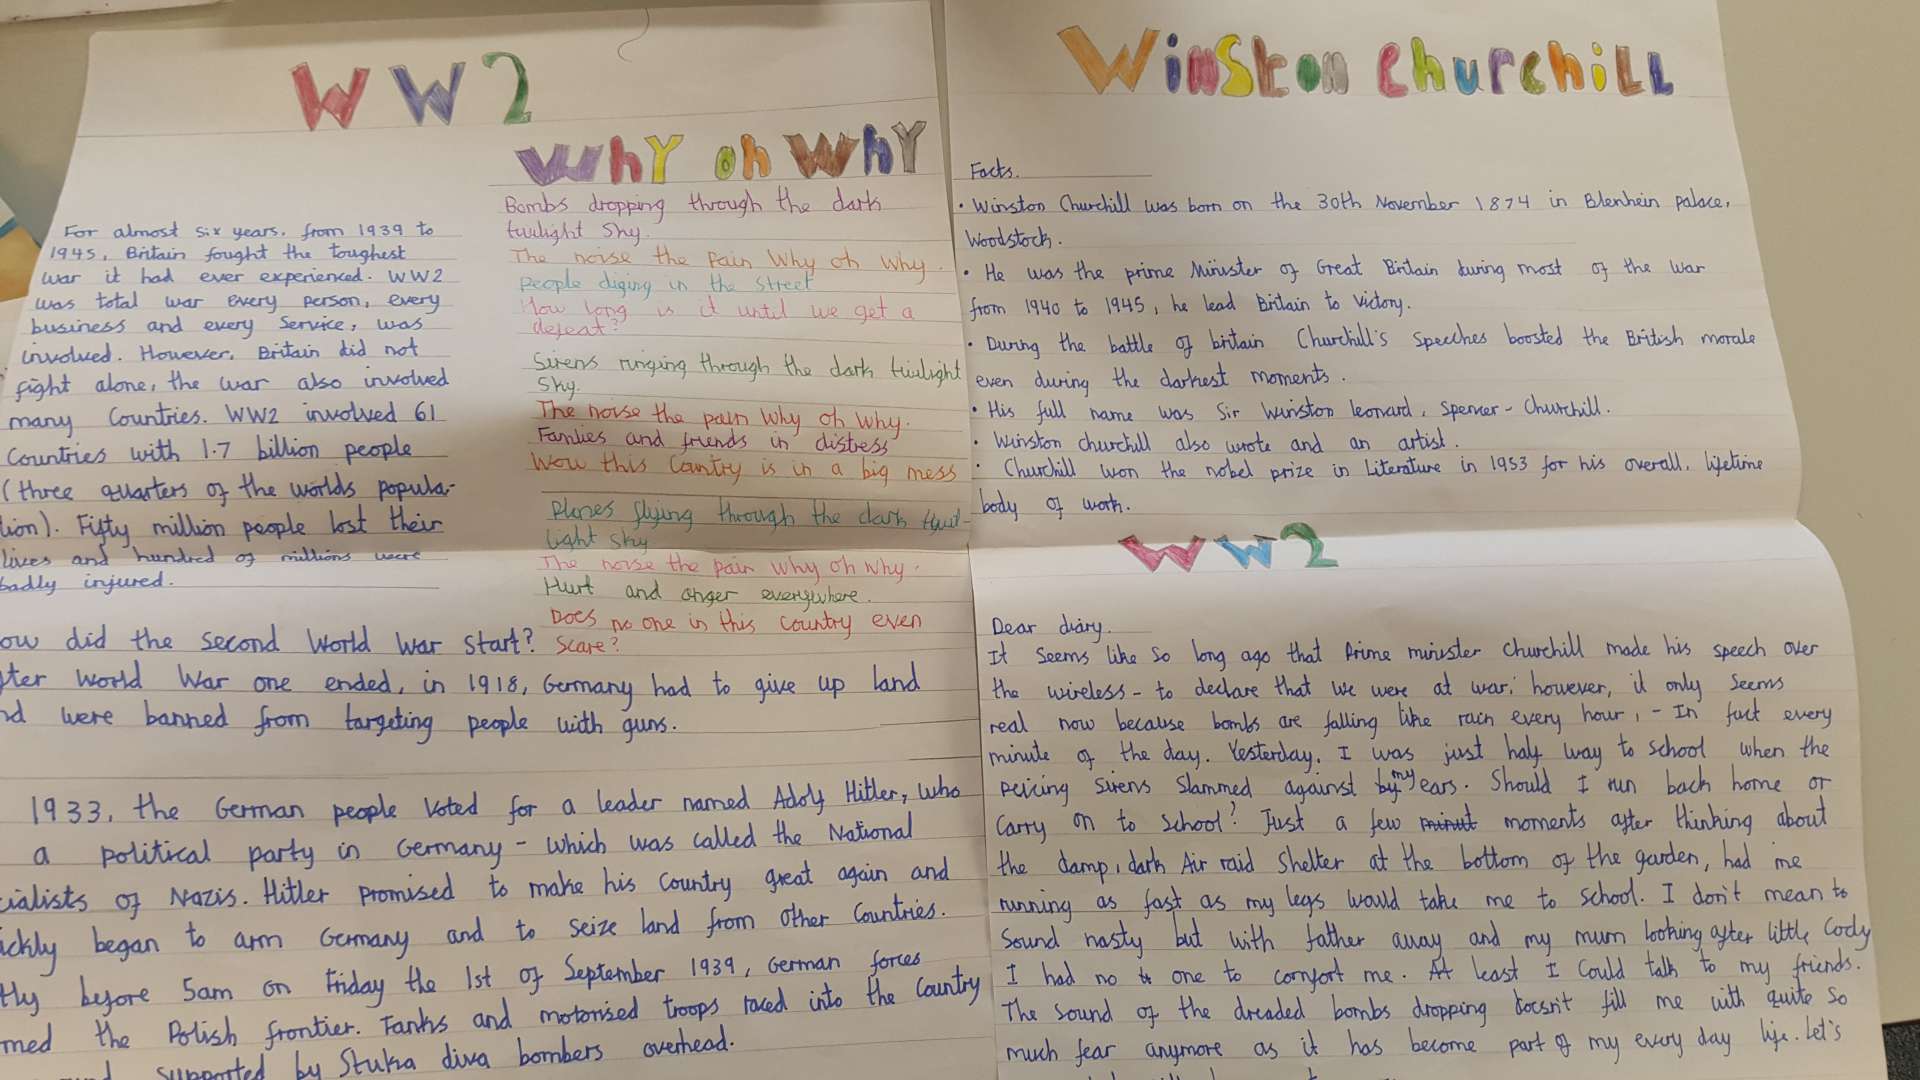 WW2
For almost six years, from 1939 to
1945, Britain fought the toughest
war it had ever experienced. WW2
was total war every person, every
business and every service, was
involved. However, Britain did not
fight alone, the war also involved
many Countries. WW2 involved 61
Countries with 1.7 billion people
(three quarters of the worlds popula-
tion). Fifty million people lost their
lives and hundred of millions were
badly injured.
Why oh Why
Bombs dropping through the dark
twilight sky.
The noise the pain Why oh why.
people diging in the street
How long is it until we get a
defeat?
Sirens ringing through the dark twilight
sky.
The noise the pain Why oh Why.
Famlies and friends in distress
Wow this Cantry is in a big mess
Planes flying through the dark twi-
light sky
The noise the pain Why oh Why.
Hurt and anger everywhere.
Does no one in this country even
scare?
ow did the second World War start?
ter World War one ended, in 1918, Germany had to give up land
nd were banned from targeting people with guns.
1933, the German people voted for a leader named Adolf Hitler, who
a political party in Germany - which was called the National
cialists of Nazis. Hitler promised to make his Country great again and
ickly began to arm Germany and to seize land from other Countries.
tly before 5am on Friday the 1st of September 1939, German forces
med the Polish frontier. Tanks and motorised troops raced into the Country
supported by Stuka diva bombers overhead.
Winston Churchill
Facts.
• Winston Churchill was born on the 30th November 1874 in Blenhein palace,
Woodstock.
• He was the prime Minister of Great Britain during most of the war
from 1940 to 1945, he lead Britain to victory.
• During the battle of britain Churchill's speeches boosted the British morale
even during the darkest moments.
• His full name was Sir Winston leonard, Spencer-Churchill.
• Winston churchill also wrote and an artist.
• Churchill won the nobel prize in Literature in 1953 for his overall, lifetime
body of work.
WW2
Dear diary.
It seems like so long ago that Prime minister Churchill made his speech over
the wireless - to declare that we were at war; however, it only seems
real now because bombs are falling like rain every hour, - In fact every
minute of the day. Yesterday, I was just half way to school when the
peircing sirens slammed against my ears. Should I run back home or
carry on to school? Just a few minut moments after thinking about
the damp, dark Air raid Shelter at the bottom of the garden, had me
running as fast as my legs would take me to school. I don't mean to
sound nasty but with father away and my mum looking after little Cody
I had no one to comfort me. At least I could talk to my friends.
The sound of the dreaded bombs dropping doesn't fill me with quite so
much fear anymore as it has become part of my every day life. Let's